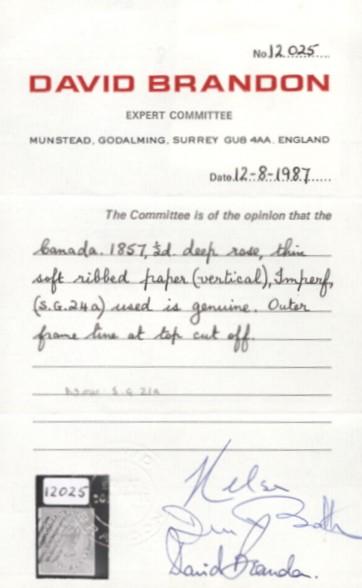 No 12025
DAVID BRANDON
EXPERT COMMITTEE
MUNSTEAD, GODALMING, SURREY GU8 4AA. ENGLAND
Date 12-8-1987
The Committee is of the opinion that the
Canada. 1857, ½d. deep rose, thin
soft ribbed paper (vertical), Imperf,
(S.G.24a) used is genuine. Outer
frame line at top cut off.
S.G 21A
12025
David Brandon.